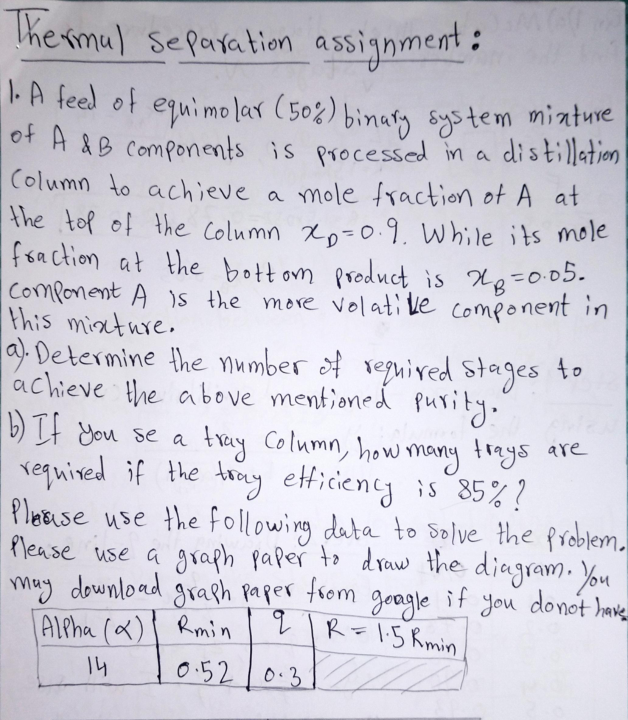 Thermal separation assignment:
1. A feed of equimolar (50%) binary system mixture
of A & B components is processed in a distillation
Column to achieve a mole fraction of A at
the top of the column x_D=0.9. While its mole
fraction at the bottom product is x_B=0.05.
Component A is the more volatile component in
this mixture.
a). Determine the number of required stages to
achieve the above mentioned purity.
b) If you se a tray Column, how many trays are
required if the tray efficiency is 85%?
Please use the following data to solve the problem.
Please use a graph paper to draw the diagram. You
may download graph paper from google if you donot have
Alpha (α) Rmin q R = 1.5 Rmin
14 0.52 0.3